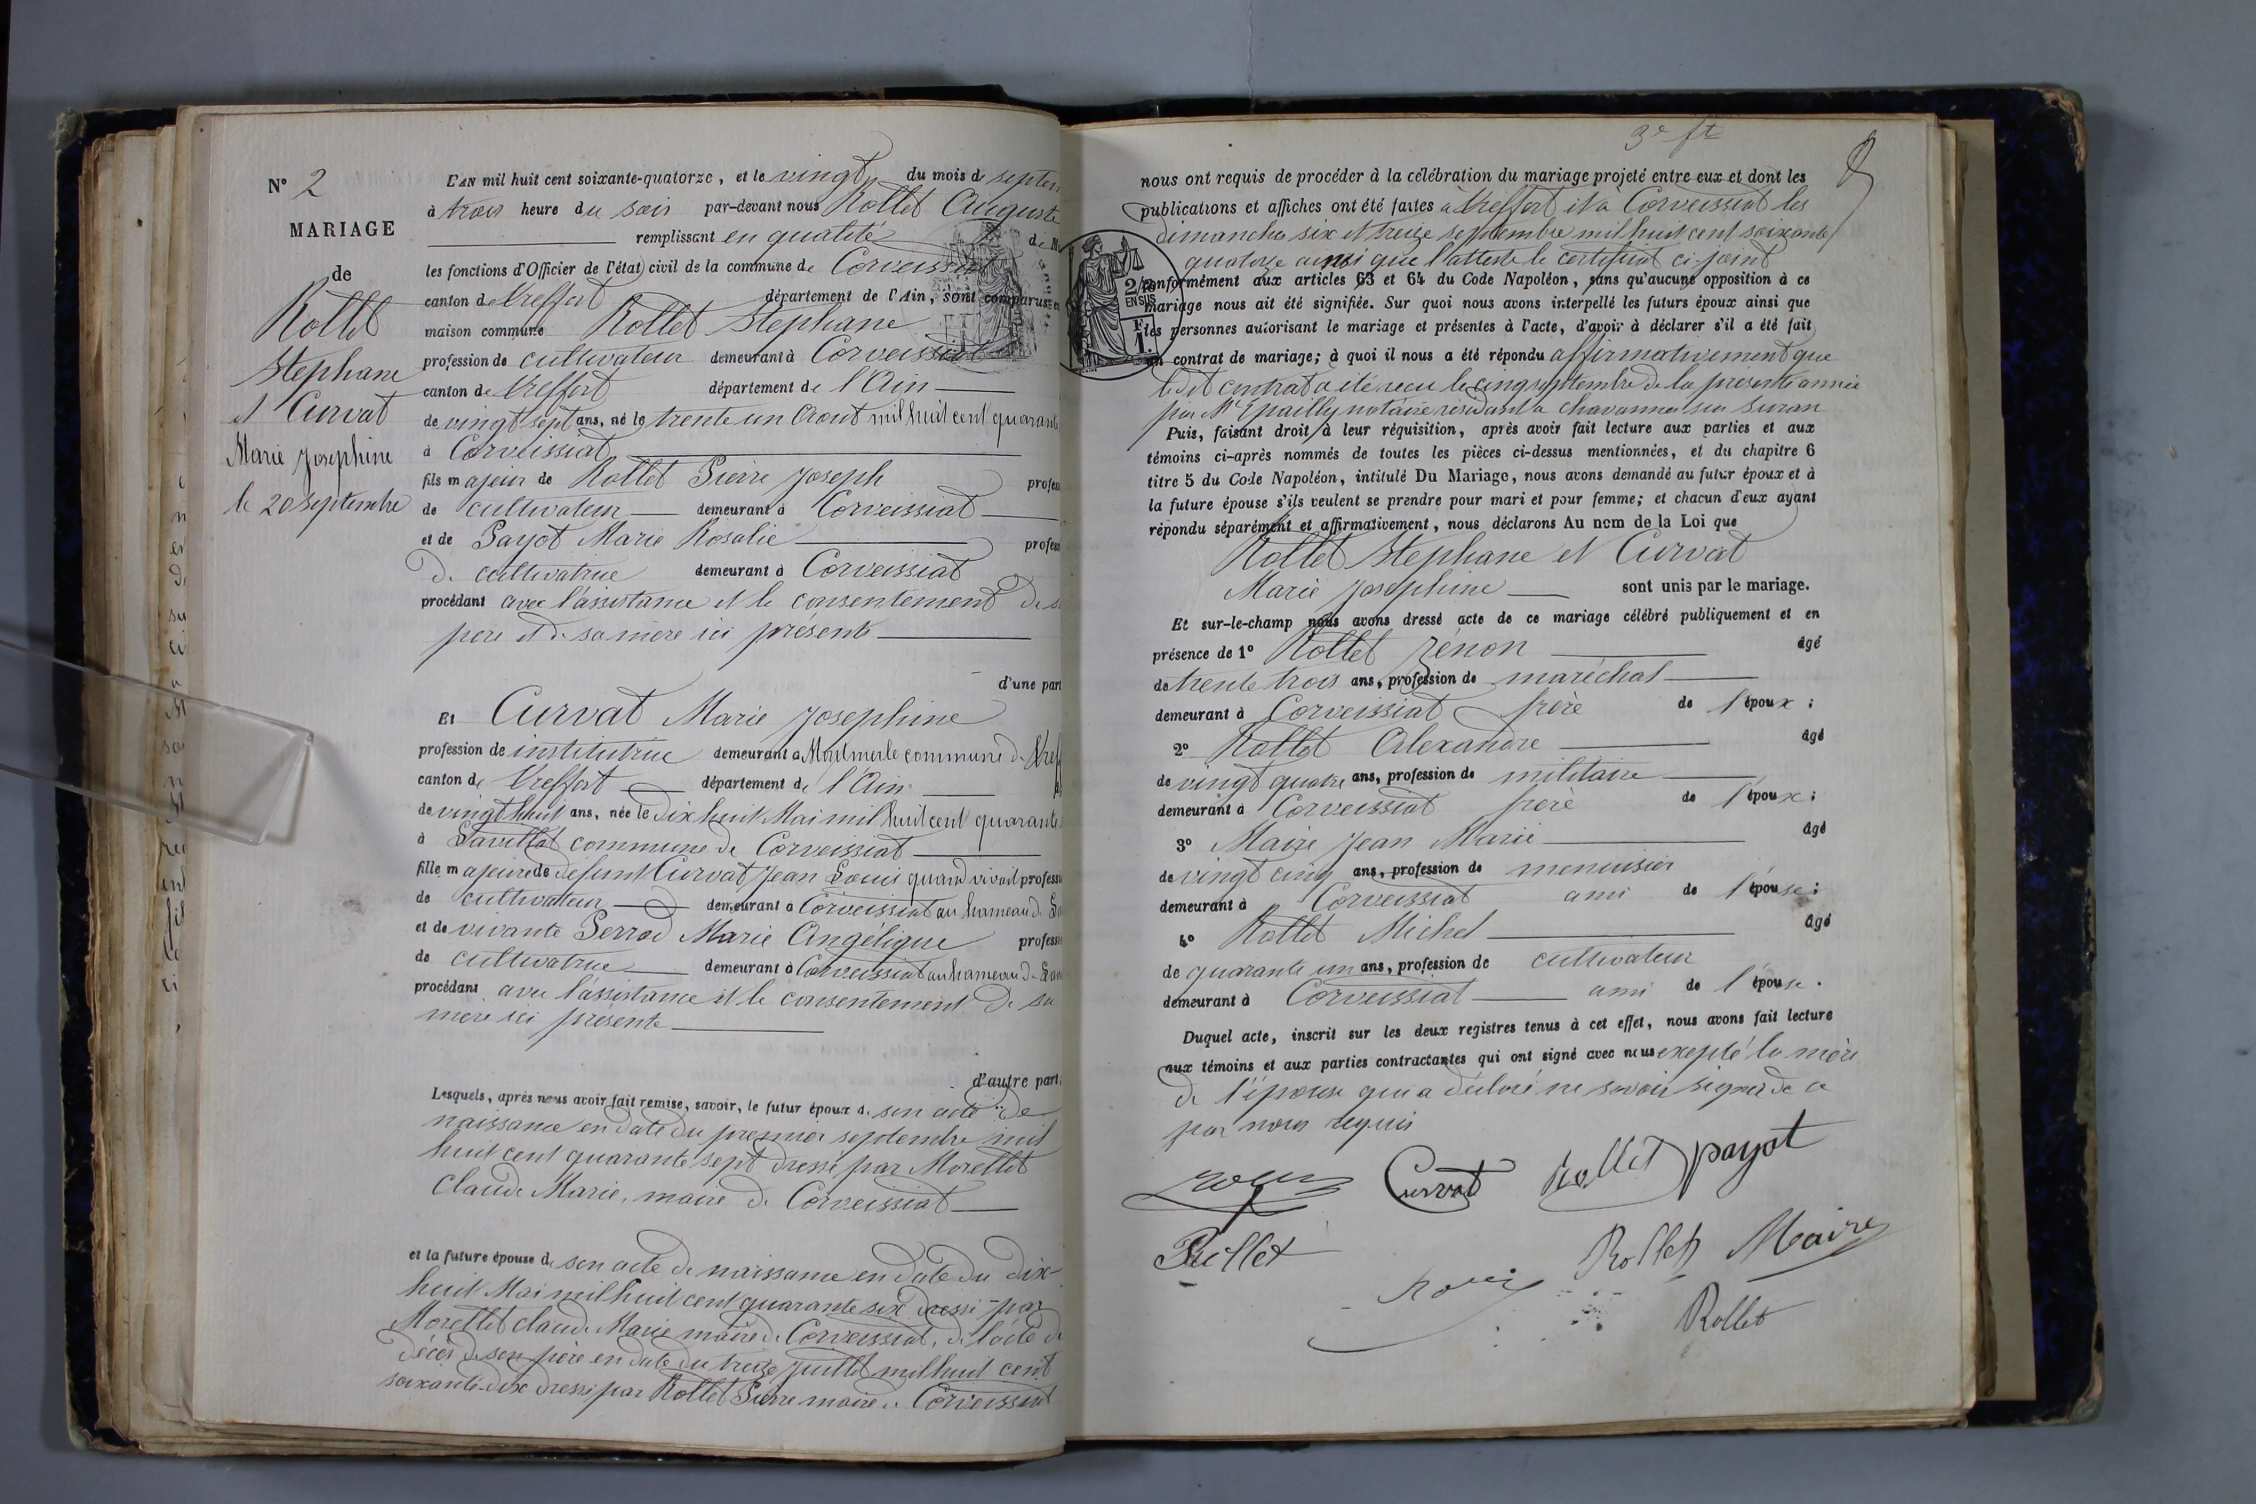 N° 2
MARIAGE
de
Rollet
Stephane
et Curvat
Marie Josephine
le 20 septembre
L'AN mil huit cent soixante-quatorze, et le vingt du mois de septem
à trois heure du soir par-devant nous Rollet Auguste
remplissant en qualité de
les fonctions d'Officier de l'état civil de la commune de Corveissiat
canton de Treffort département de l'Ain, sont comparus en
maison commune Rollet Stephane
profession de cultivateur demeurant à Corveissiat
canton de Treffort département de l'Ain
de vingt sept ans, né le trente un Aout mil huit cent quarante
à Corveissiat
fils majeur de Rollet Pierre Joseph profes
de cultivateur demeurant à Corveissiat
et de Payot Marie Rosalie profess
De cultivatrice demeurant à Corveissiat
procédant avec l'assistance et le consentement De s
pere et de sa mère ici présents
d'une part
Et Curvat Marie Josephine
profession de institutrice demeurant à Montmerle commune de Tref
canton de Treffort département de l'Ain
de vingt huit ans, née le dix huit Mai mil huit cent quarante
à Lavillat commune de Corveissiat
fille majeure de defunt Curvat Jean Louis quand vivait professi
de cultivateur demeurant à Corveissiat au hameau de La
et de vivante Perrod Marie Angélique professi
de cultivatrice demeurant à Corveissiat au hameau de La
procédant avec l'assistance et le consentement De sa
mère ici présente
d'autre part.
Lesquels, après nous avoir fait remise, savoir, le futur époux de son acte De
naissance en date du premier septembre mil
huit cent quarante sept dressé par Morellet
Claude Marie, maire de Corveissiat
et la future épouse de son acte de naissance en date du dix-
huit Mai mil huit cent quarante six dressé par
Morellet Claude Marie maire de Corveissiat, de l'acte de
décès de son père en date du treize Juillet mil huit cent
soixante-dix dressé par Rollet Pierre maire de Corveissiat
3e ft
nous ont requis de procéder à la célébration du mariage projeté entre eux et dont les
publications et affiches ont été faites à Treffort et à Corveissiat les
dimanches six et treize septembre mil huit cent soixante
quatorze ainsi que l'atteste le certificat ci-joint
conformément aux articles 63 et 64 du Code Napoléon, sans qu'aucune opposition à ce
mariage nous ait été signifiée. Sur quoi nous avons interpellé les futurs époux ainsi que
les personnes autorisant le mariage et présentes à l'acte, d'avoir à déclarer s'il a été fait
un contrat de mariage; à quoi il nous a été répondu affirmativement que
le dit contrat a été reçu le cinq septembre de la présente année
par Me Epailly notaire résidant à Chavannes sur Suran
Puis, faisant droit à leur réquisition, après avoir fait lecture aux parties et aux
témoins ci-après nommés de toutes les pièces ci-dessus mentionnées, et du chapitre 6
titre 5 du Code Napoléon, intitulé Du Mariage, nous avons demandé au futur époux et à
la future épouse s'ils veulent se prendre pour mari et pour femme; et chacun d'eux ayant
répondu séparément et affirmativement, nous déclarons Au nom de la Loi que
Rollet Stephane et Curvat
Marie Josephine sont unis par le mariage.
Et sur-le-champ nous avons dressé acte de ce mariage célébré publiquement et en
présence de 1° Rollet Zénon âgé
de trente trois ans, profession de maréchal
demeurant à Corveissiat frère de l'époux;
2° Rollet Alexandre âgé
de vingt quatre ans, profession de militaire
demeurant à Corveissiat frère de l'époux;
3° Maire Jean Marie âgé
de vingt cinq ans, profession de menuisier
demeurant à Corveissiat ami de l'épouse;
4° Rollet Michel âgé
de quarante un ans, profession de cultivateur
demeurant à Corveissiat ami de l'épouse.
Duquel acte, inscrit sur les deux registres tenus à cet effet, nous avons fait lecture
aux témoins et aux parties contractantes qui ont signé avec nous exepté la mère
de l'épouse qui a déclaré ne savoir signer de ce
par nous requis
Curvat Rollet Payot
Rollet
Rollet Maire
Rollet